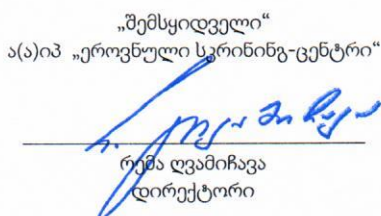 „შემსყიდველი“
ა(ა)იპ „ეროვნული სკრინინგ-ცენტრი“
რემა ღვამიჩავა
დირექტორი